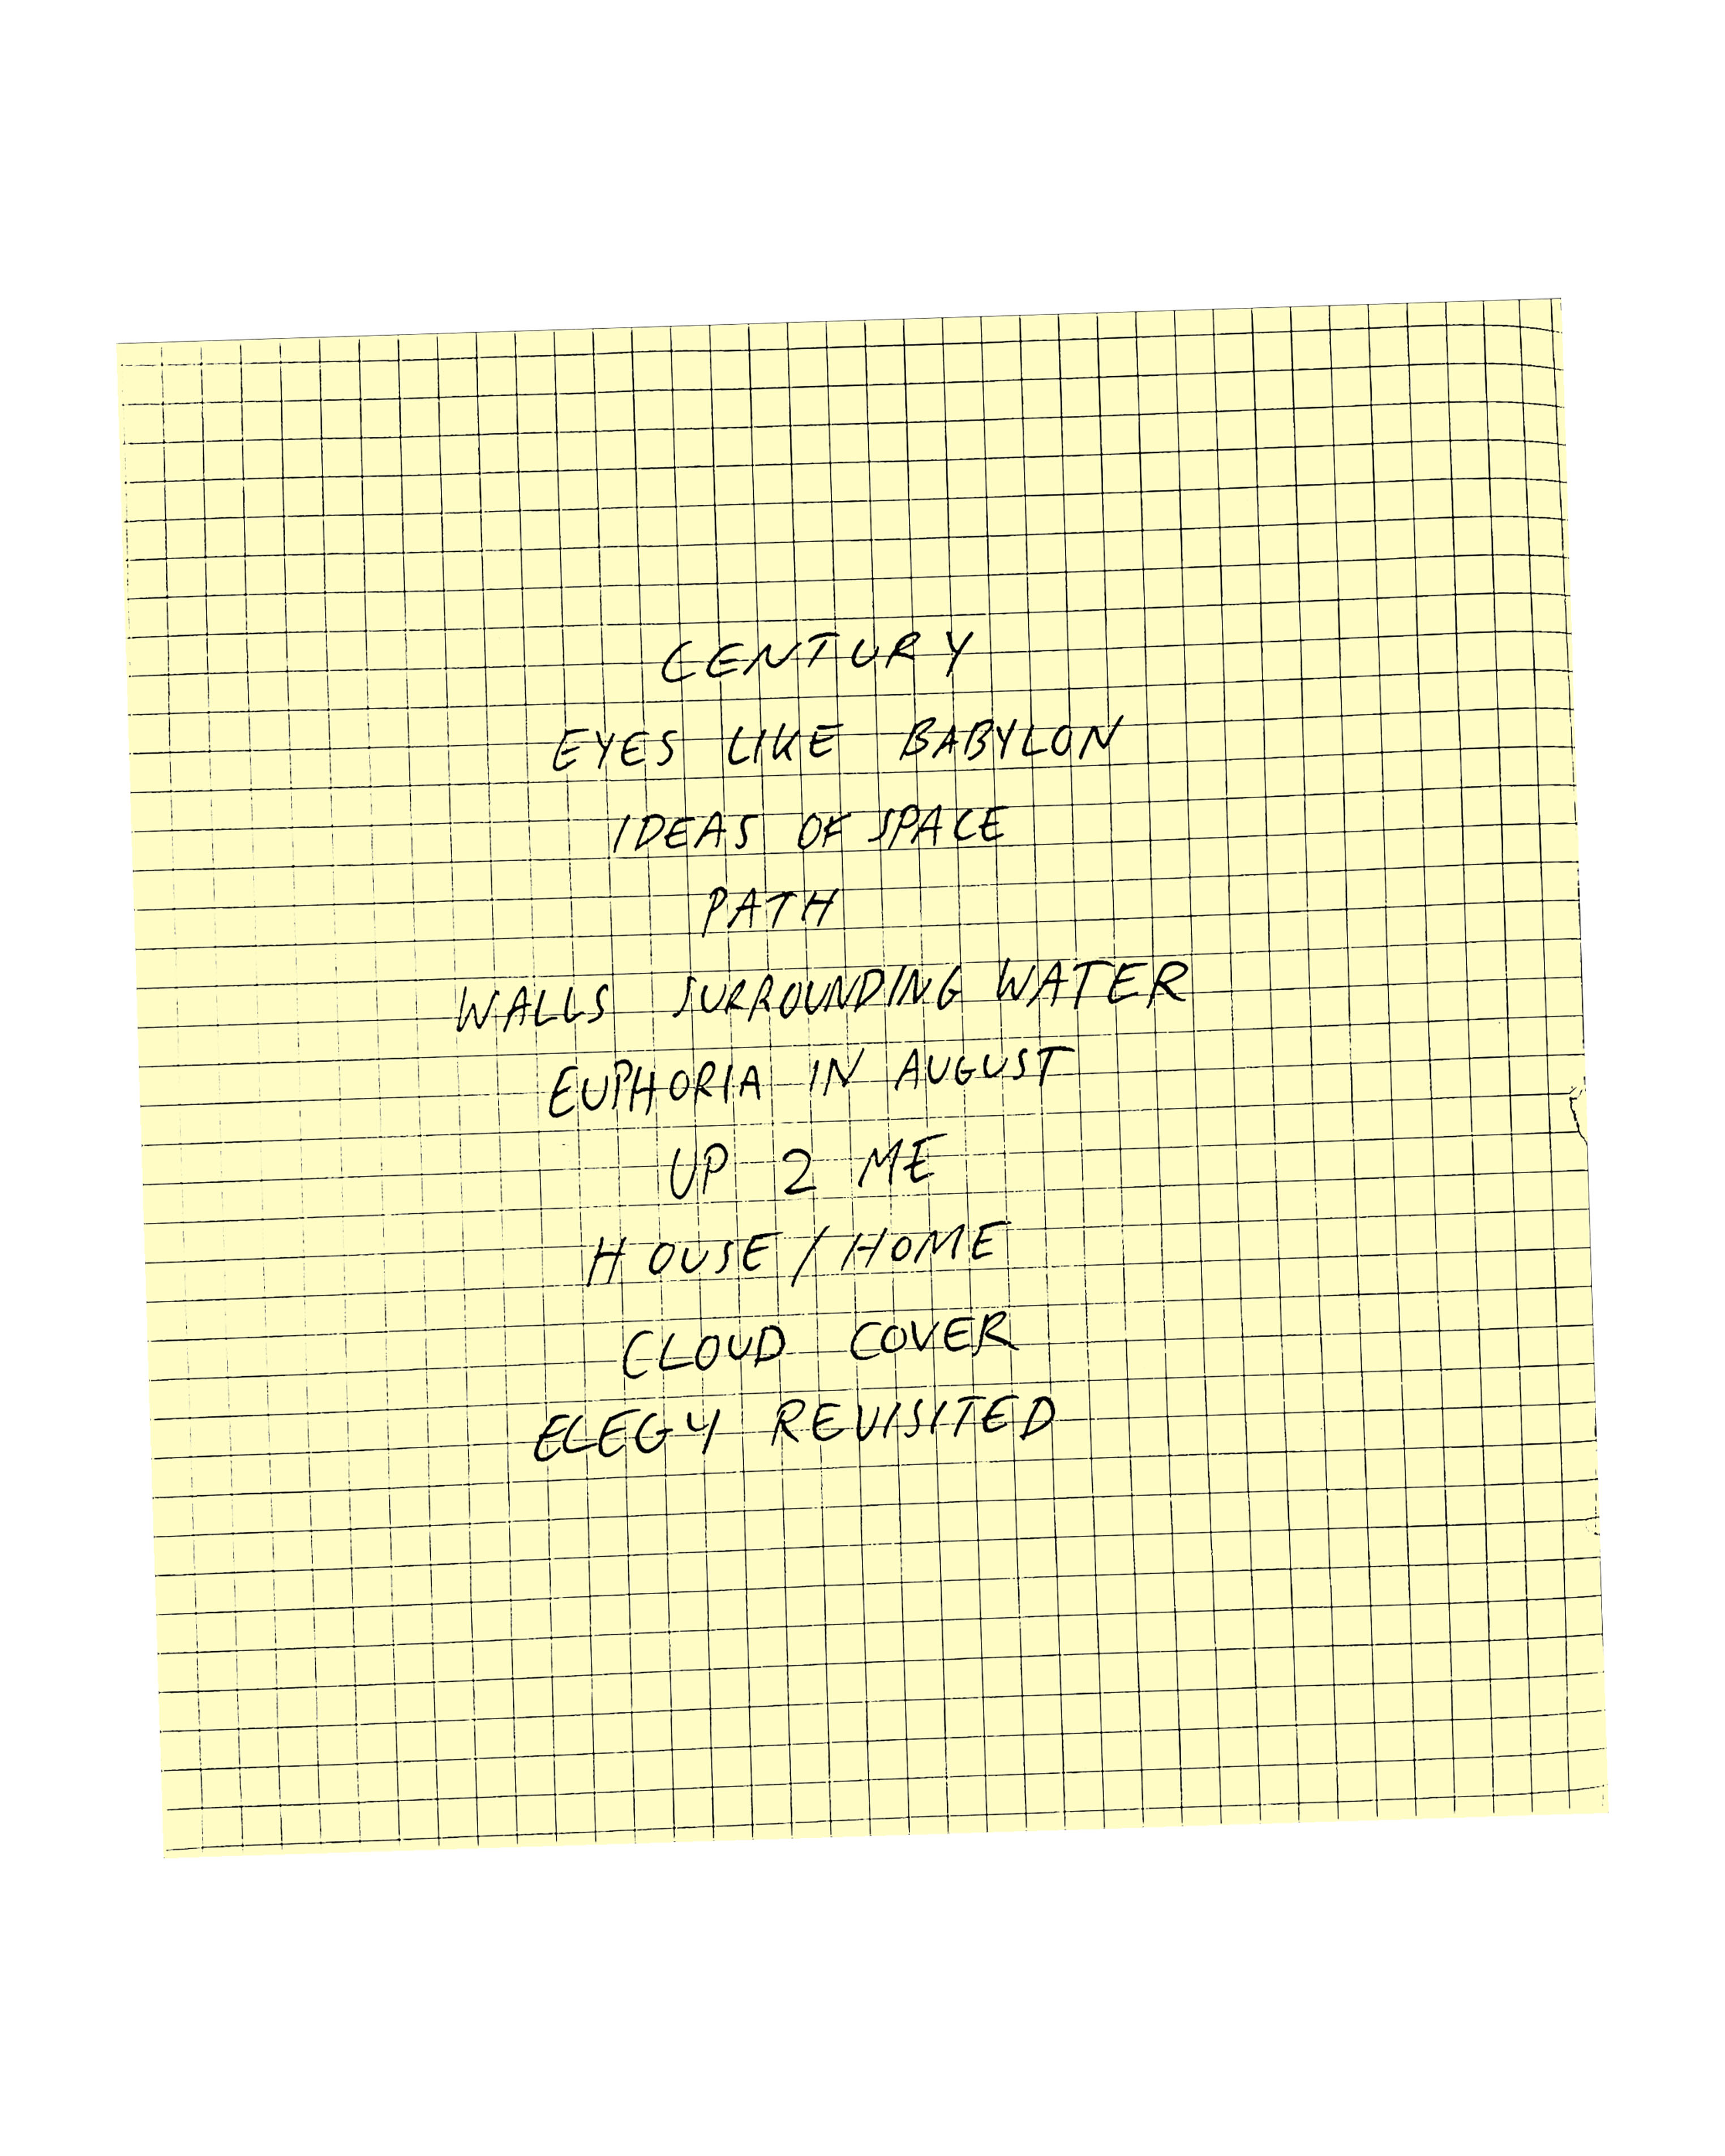 CENTURY
EYES LIKE BABYLON
IDEAS OF SPACE
PATH
WALLS SURROUNDING WATER
EUPHORIA IN AUGUST
UP 2 ME
HOUSE / HOME
CLOUD COVER
ELEGY REVISITED